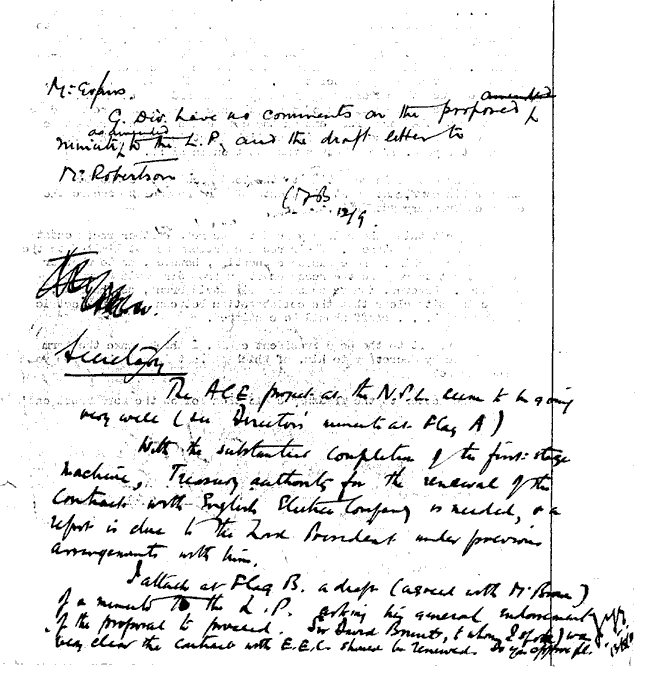 Mr
G. Div. have no comments on the proposed
amended
as amended
minute to the L.P. and the draft letter to
Mr Robertson
12/9.
Secretary
The ACE project at the N.P.L. seems to be going
very well (see Director's minute at Flag A)
With the substantial completion of the first-stage
machine, Treasury authority for the renewal of the
contract with English Electric Company is needed, & a
report is due to the Lord President under previous
arrangements with him.
I attach at Flag B. a draft (agreed with Mr )
of a minute to the L.P. asking his general endorsement
of the proposal to proceed. Sir David , to whom I spoke, was
very clear the contract with E.E.C. should be renewed. Do you approve pl.